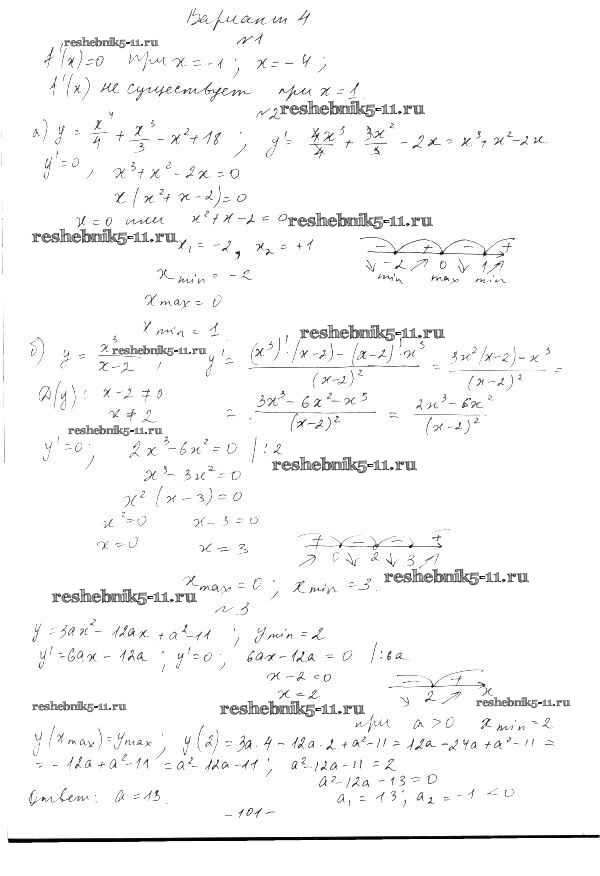 Вариант 4
reshebnik5-11.ru
№1
f'(x)=0 при x=-1; x=-4;
f'(x) не существует при x=1
№2 reshebnik5-11.ru
а) y = x⁴/4 + x³/3 - x² + 18; y' = 4x³/4 + 3x²/3 - 2x = x³ + x² - 2x
y'=0, x³ + x² - 2x = 0
x(x² + x - 2) = 0
x=0 или x² + x - 2 = 0 reshebnik5-11.ru
reshebnik5-11.ru
x₁ = -2, x₂ = +1
- + - +
-2 0 1
min max min
x min = -2
x max = 0
x min = 1
reshebnik5-11.ru
б) y = x³/(x-2); y' = ((x³)'·(x-2) - (x-2)'·x³)/(x-2)² = (3x²(x-2) - x³)/(x-2)² =
reshebnik5-11.ru
D(y): x-2≠0
x≠2
= (3x³ - 6x² - x³)/(x-2)² = (2x³ - 6x²)/(x-2)²
reshebnik5-11.ru
y'=0; 2x³ - 6x² = 0 |:2
reshebnik5-11.ru
x³ - 3x² = 0
x²(x-3) = 0
x²=0 x-3=0
x=0 x=3
+ - - +
0 2 3
x max = 0; x min = 3.
reshebnik5-11.ru
reshebnik5-11.ru
№3
y = 3ax² - 12ax + a² - 11; y min = 2
y' = 6ax - 12a; y'=0; 6ax - 12a = 0 |:6a
x-2=0
x=2
- +
2 x
reshebnik5-11.ru reshebnik5-11.ru reshebnik5-11.ru
при a>0 x min = 2
y(x max) = y max; y(2) = 3a·4 - 12a·2 + a² - 11 = 12a - 24a + a² - 11 =
= -12a + a² - 11 = a² - 12a - 11; a² - 12a - 11 = 2
a² - 12a - 13 = 0
Ответ: a=13. a₁ = 13; a₂ = -1 < 0
-101-